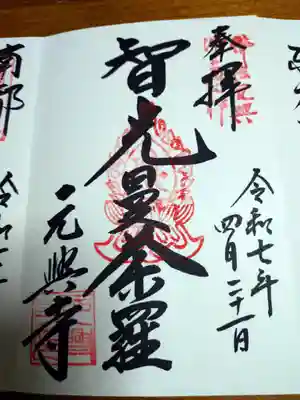 奉拝
令和七年
四月二十一日
智光曼荼羅
元興寺
南都
令和七